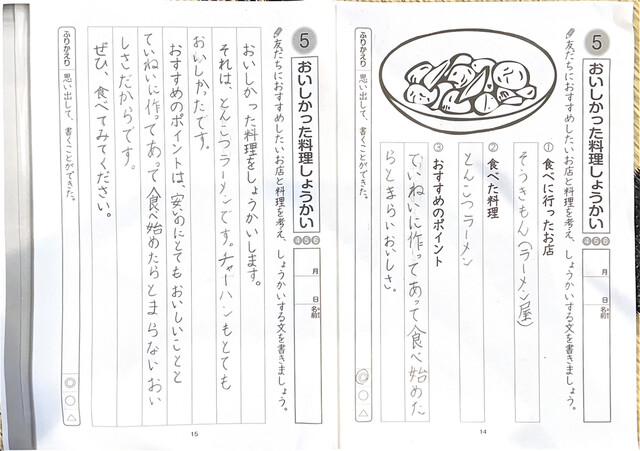 5
おいしかった料理しょうかい
④⑤⑥
月
日
名前
友だちにおすすめしたいお店と料理を考え、しょうかいする文を書きましょう。
① 食べに行ったお店
そうきもん(ラーメン屋)
② 食べた料理
とんこつラーメン
③ おすすめのポイント
ていねいに作ってあって食べ始めた
らとまらいおいしさ。
ふりかえり
思い出して、書くことができた。
◎○△
14
5
おいしかった料理しょうかい
④⑤⑥
月
日
名前
友だちにおすすめしたいお店と料理を考え、しょうかいする文を書きましょう。
おいしかった料理をしょうかいします。
それは、とんこつラーメンです。チャーハンもとても
おいしかったです。
おすすめのポイントは、安いのにとてもおいしいことと
ていねいに作ってあって食べ始めたらとまらないおい
しさだからです。
ぜひ、食べてみてください。
ふりかえり
思い出して、書くことができた。
◎○△
15